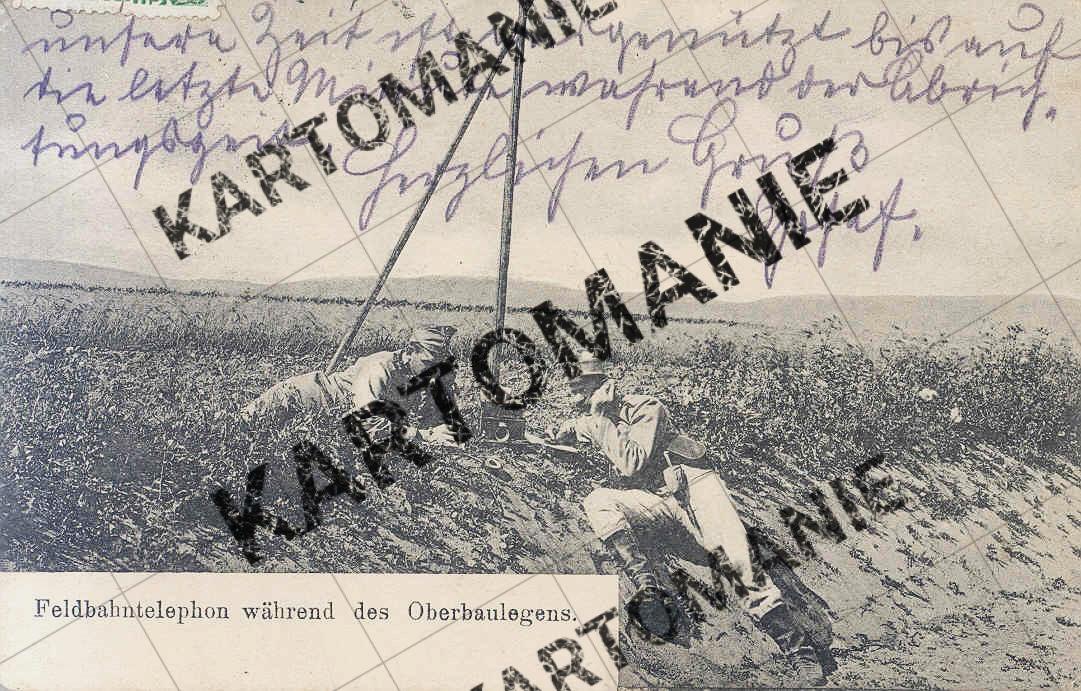 unsere Zeit ist ausgenützt bis auf
die letzte Minute während der Abrich-
tungszeit Herzlichen Gruß
Josef.
KARTOMANIE
KARTOMANIE
KARTOMANIE
KARTOMANIE
KARTOMANIE
KARTOMANIE
Feldbahntelephon während des Oberbaulegens.